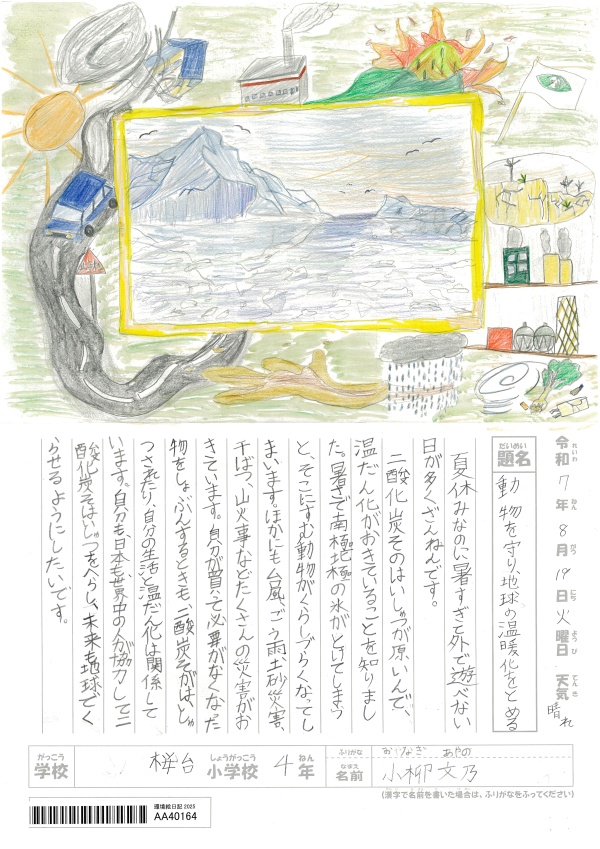 令和7年8月19日火曜日 天気 晴れ
れいわ ねん がつ にち ようび てんき
だいめい
題名
動物を守り、地球の温暖化をとめる
夏休みなのに暑すぎて外で遊べない
日が多くざんねんです。
二酸化炭そのはいしゅつが原いんで、
温だん化がおきていることを知りまし
た。暑さで南極北極の氷がとけてしまう
と、そこにすむ動物がくらしづらくなってし
まいます。ほかにも台風、ごう雨、土砂災害、
干ばつ、山火事などたくさんの災害がお
きています。自分が買って必要がなくなった
物をしょぶんするときも、二酸化炭そがはいしゅ
つされたり、自分の生活と温だん化は関係して
います。自分も、日本も、世界中の人が協力して二
酸化炭そはいしゅつをへらし、未来も地球でく
らせるようにしたいです。
がっこう
学校
桜台
しょうがっこう
小学校
4年
ねん
ふりがな
あやの
なまえ
名前
小柳文乃
(漢字で名前を書いた場合は、ふりがなをふってください)
環境絵日記 2025
AA40164